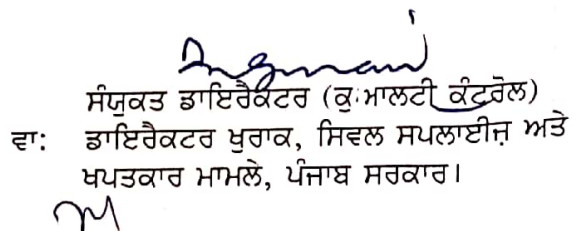 ਸੰਯੁਕਤ ਡਾਇਰੈਕਟਰ (ਕੁ:ਮਾਲਟੀ ਕੰਟਰੋਲ)
ਵਾ: ਡਾਇਰੈਕਟਰ ਖੁਰਾਕ, ਸਿਵਲ ਸਪਲਾਈਜ਼ ਅਤੇ
ਖਪਤਕਾਰ ਮਾਮਲੇ, ਪੰਜਾਬ ਸਰਕਾਰ।